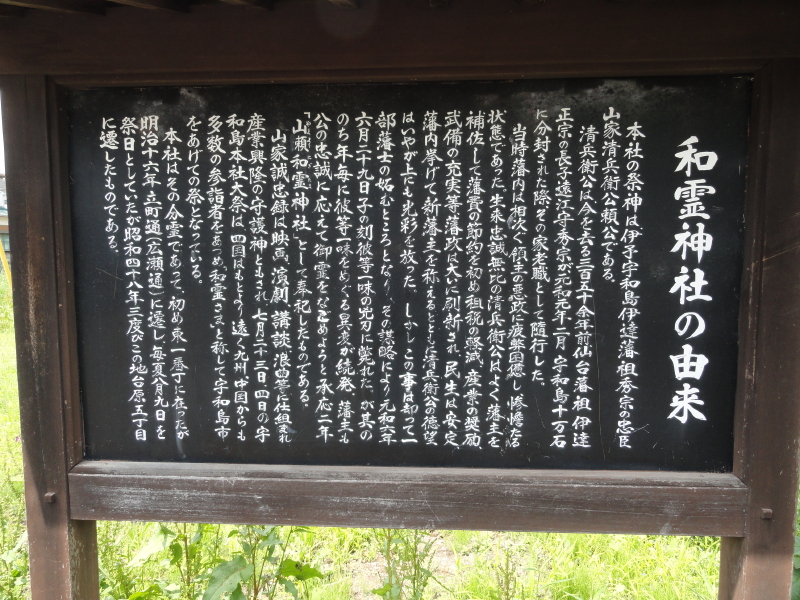 和霊神社の由来
本社の祭神は伊予宇和島伊達藩祖秀宗の忠臣
山家清兵衛公頼公である。
清兵衛公は今を去る三百五十余年前仙台藩祖伊達
正宗の長子遠江守秀宗が元和元年二月宇和島十万石
に分封された際、その家老職として隨行した。
当時藩内は相次ぐ領主の悪政に疲弊困憊し惨憺たる
状態であった。生来忠誠無比の清兵衛公はよく藩主を
補佐して藩費の節約を初め租税の軽減、産業の奨励、
武備の充実等藩政は大いに刷新され、民生は安定、
藩内挙げて新藩主を称えるとともに清兵衛公の徳望
はいやが上にも光彩を放った。しかしこの事は却って一
部藩士の妬むところとなり、その謀略により元和六年
六月二十九日子の刻彼等一味の兇刃に斃れた。が其の
のち年毎に彼等一味をめぐる異変が続発、藩主も
公の忠誠に応えて御霊をなごめようと承応二年
「山頼和霊神社」として奉祀したものである。
山家誠忠録は映画、演劇、講談、浪曲等に仕組まれ
産業興隆の守護神ともされ、七月二十三日、四日の宇
和島本社大祭は四国はもとより遠く九州、中国からも
多数の参詣者をあつめ「和霊さま」と称して宇和島市
をあげての祭となっている。
本社はその分霊であって、初め東一番丁に在ったが
明治十六年立町通(広瀬通)に遷し毎夏八月九日を
祭日としていたが昭和四十八年三度びこの地台原五丁目
に遷したものである。